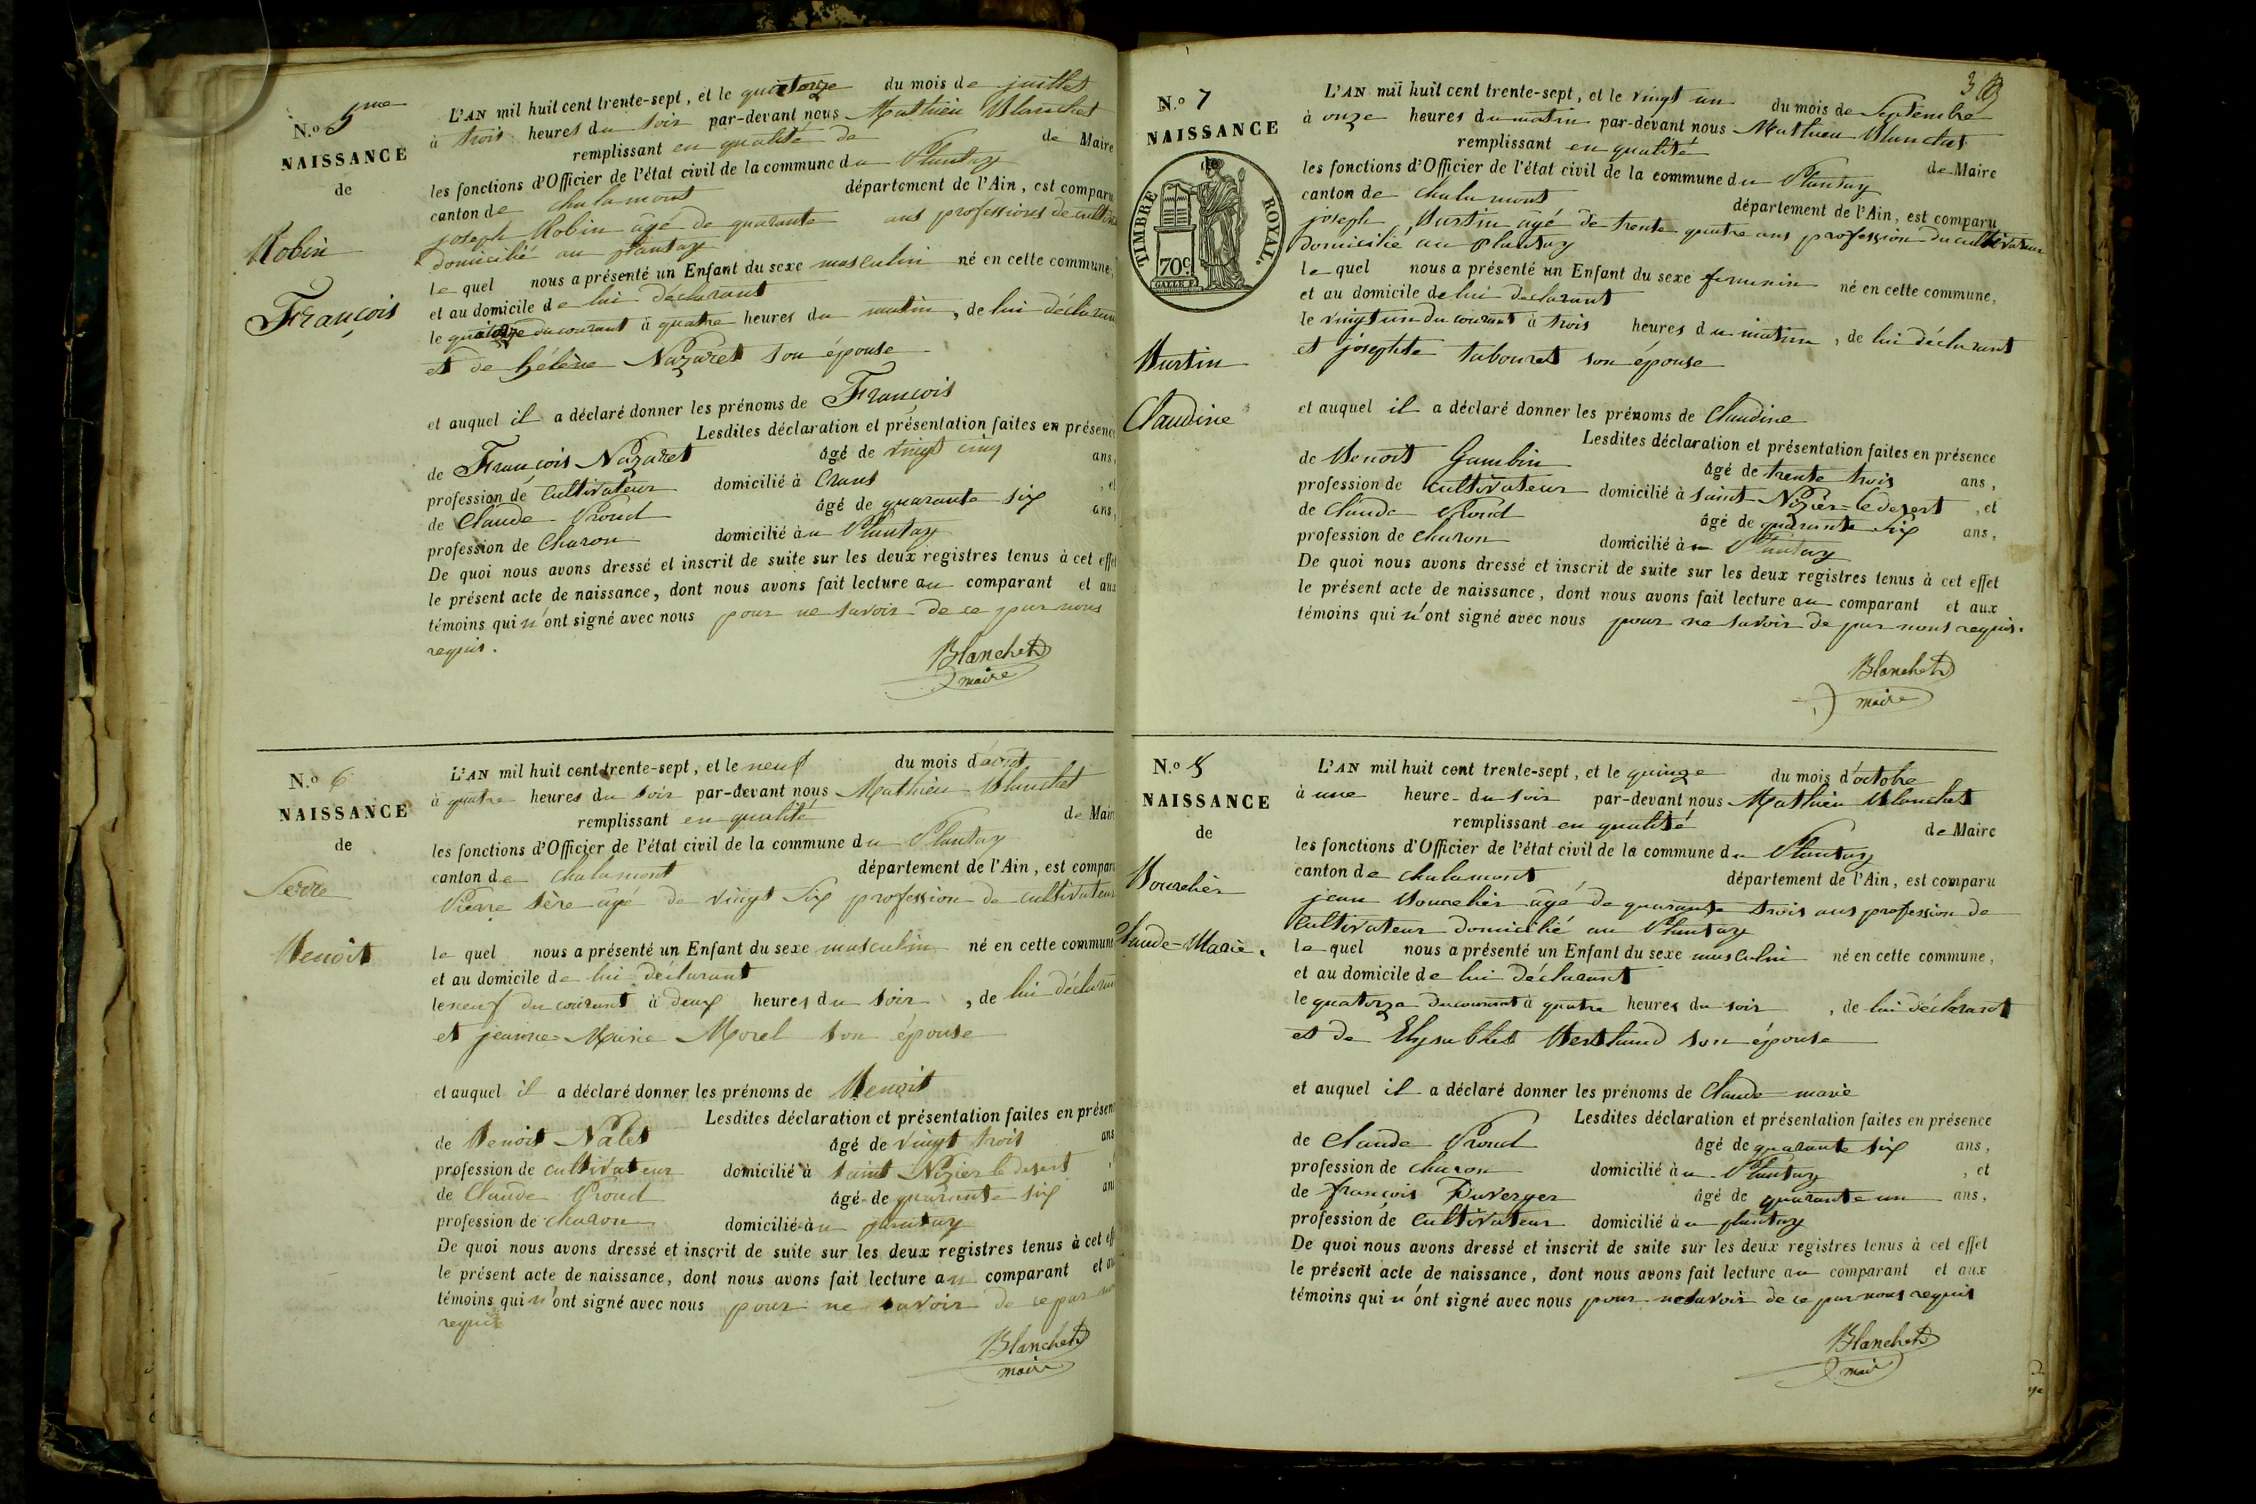 N.o 5me
NAISSANCE
de
Robin
François
L'AN mil huit cent trente-sept, et le quatorze du mois de juillet
à trois heures du soir par-devant nous Mathieu Blanchet
remplissant en qualité de de Maire
les fonctions d'Officier de l'état civil de la commune du Plantay
canton de chalamont département de l'Ain, est comparu
joseph Robin âgé de quarante ans professions de
domicilié au plantay
le quel nous a présenté un Enfant du sexe masculin né en cette commune,
et au domicile de lui déclarant
le quatorze du courant à quatre heures du matin, de lui déclarant
et de hélène Nazaret son épouse
et auquel il a déclaré donner les prénoms de François
Lesdites déclaration et présentation faites en présence
de François Nazaret âgé de vingt cinq ans,
profession de cultivateur domicilié à Crans, et
de Claude Proud âgé de quarante six ans,
profession de Charon domicilié au Plantay
De quoi nous avons dressé et inscrit de suite sur les deux registres tenus à cet effet
le présent acte de naissance, dont nous avons fait lecture au comparant et aux
témoins qui n'ont signé avec nous pour ne savoir de ce par nous
requis.
Blanchet
maire
N.o 6
NAISSANCE
de
Serre
Benoit
L'AN mil huit cent trente-sept, et le neuf du mois d'août
à quatre heures du soir par-devant nous Mathieu Blanchet
remplissant en qualité de Maire
les fonctions d'Officier de l'état civil de la commune du Plantay
canton de chalamont département de l'Ain, est comparu
Pierre Sère âgé de vingt Six profession de cultivateur
le quel nous a présenté un Enfant du sexe masculin né en cette commune
et au domicile de lui déclarant
le neuf du courant à deux heures du soir, de lui déclarant
et jeanne-Marie Morel son épouse
et auquel il a déclaré donner les prénoms de Benoit
Lesdites déclaration et présentation faites en présence
de Benoit Nalet âgé de vingt trois ans
profession de cultivateur domicilié à saint Nizier le desert
de Claude Proud âgé de quarante six ans
profession de charon domicilié au plantay
De quoi nous avons dressé et inscrit de suite sur les deux registres tenus à cet eff
le présent acte de naissance, dont nous avons fait lecture au comparant et au
témoins qui n'ont signé avec nous pour ne savoir de ce par nous
requis
Blanchet
maire
N.o 7
NAISSANCE
TIMBRE ROYAL.
70c.
Burtin
Claudine
L'AN mil huit cent trente-sept, et le vingt un du mois de Septembre
à onze heures du matin par-devant nous Mathieu Blanchet
remplissant en qualité de Maire
les fonctions d'Officier de l'état civil de la commune du Plantay
canton de chalamont département de l'Ain, est comparu
joseph Burtin âgé de trente quatre ans profession du cultivateur
domicilié au plantay
le quel nous a présenté un Enfant du sexe feminin né en cette commune,
et au domicile de lui declarant
le vingt un du courant à trois heures du matin, de lui déclarant
et josephte tabouret son épouse
et auquel il a déclaré donner les prénoms de Claudine
Lesdites déclaration et présentation faites en présence
de Benoit Gambin âgé de trente trois ans,
profession de cultivateur domicilié à saint Nizier-le desert, et
de Claude Proud âgé de quarante Six ans,
profession de charon domicilié au Plantay
De quoi nous avons dressé et inscrit de suite sur les deux registres tenus à cet effet
le présent acte de naissance, dont nous avons fait lecture au comparant et aux
témoins qui n'ont signé avec nous pour ne savoir de par nous requis.
Blanchet
maire
N.o 8
NAISSANCE
de
Bourchier
Claude-Marie.
L'AN mil huit cent trente-sept, et le quinze du mois d'octobre
à une heure du soir par-devant nous Mathieu Blanchet
remplissant en qualité de Maire
les fonctions d'Officier de l'état civil de la commune du Plantay
canton de chalamont département de l'Ain, est comparu
jean Bourchier âgé de quarante trois ans profession de
cultivateur domicilié au Plantay
le quel nous a présenté un Enfant du sexe masculin né en cette commune,
et au domicile de lui déclarant
le quatorze du courant à quatre heures du soir, de lui déclarant
et de Elysabhet Berthaud son épouse
et auquel il a déclaré donner les prénoms de Claude-marie
Lesdites déclaration et présentation faites en présence
de Claude Proud âgé de quarante six ans,
profession de charon domicilié au Plantay, et
de françois Duverger âgé de quarante un ans,
profession de cultivateur domicilié au plantay
De quoi nous avons dressé et inscrit de suite sur les deux registres tenus à cet effet
le présent acte de naissance, dont nous avons fait lecture au comparant et aux
témoins qui n'ont signé avec nous pour ne savoir de ce par nous requis
Blanchet
maire